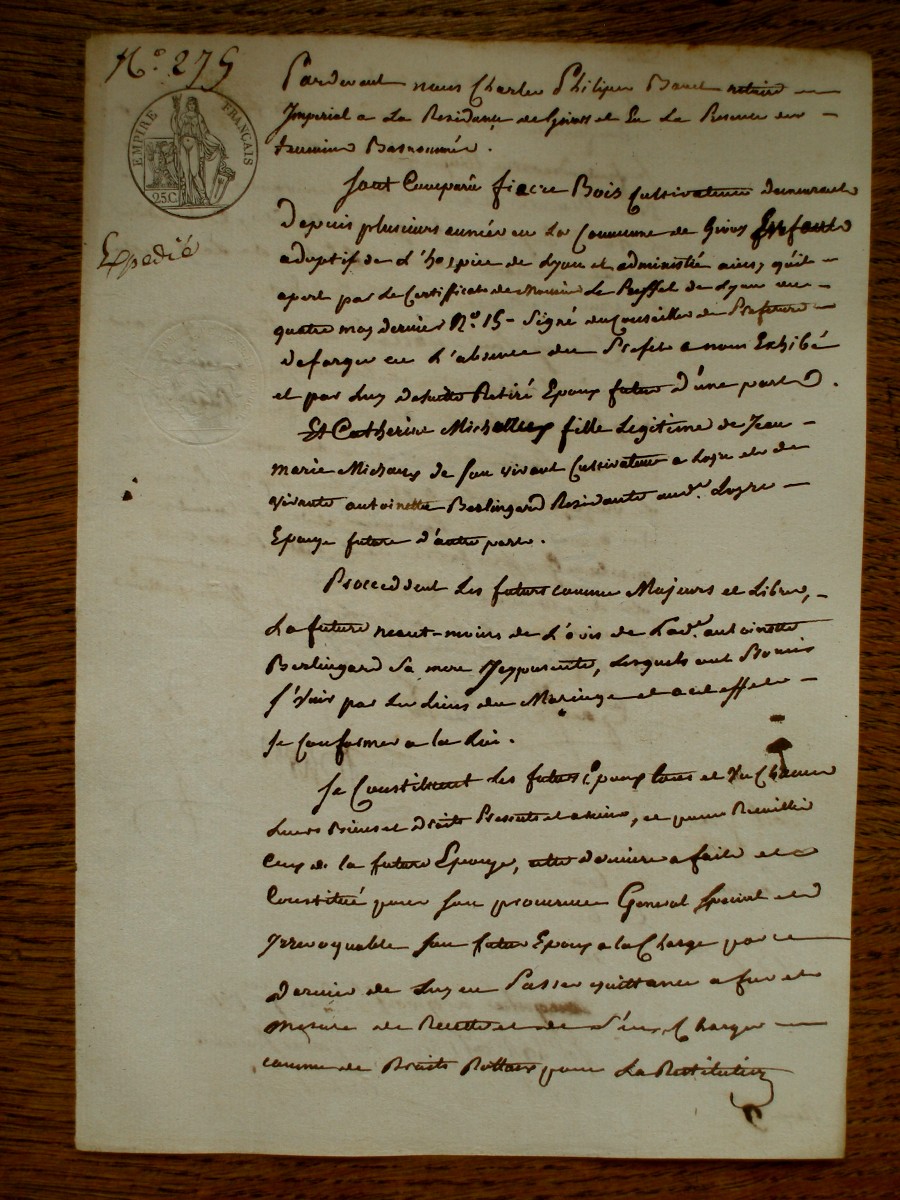 N.o 275
EMPIRE FRANÇAIS
25C.
Expedié
Pardevant nous Charles Philipe notaire
Imperial a La Residance de Givors et En La Presence des
temoins Basnommés.
Sont Comparu fiacre Bois Cultivateur demeurant
Depuis plusieurs année en La Commune de Givors Enfant
adoptif de L'hospice de Lyon et administré qu'il
apert par Le Certificat de Monsieur Le Preffet de Lyon
quatre may dernier N.o 15 - Signé du Conseiller de Prefecture
en L'absence du Prefet a nous Exhibé
et par Luy desuitte Retiré Epoux futur D'une part.
Et Catherine fille Legitime de Jean
marie de son vivant Cultivateur a Loyre et de
vivante antoinette Berlingard Residante aud.t Loyre
Epouse future d'autre part.
Proceddent Les futurs comme Majeurs et Libres,
La future neant-moins de L'avis de Lad.e antoinette
Berlingard Sa mere Icypresente, Lesquels ont Promis
S'Unir par Les Liens du Mariage et a cet effet
Se Conformer a la Loi.
Se Constituent Les futurs Epoux tous et Un Chacun
Leurs Biens et droits Presents et avenir, et pour Recuillir
Ceux de la future Epouse, cette derniere a fait et
Constitué pour Son procureur General Special et
Irrevoquable Son futur Epoux a la Charge par ce
dernier de Luy en Passer quittance a fur et
mesure de Recette et de Charger
comme de Droits pour La Restitution